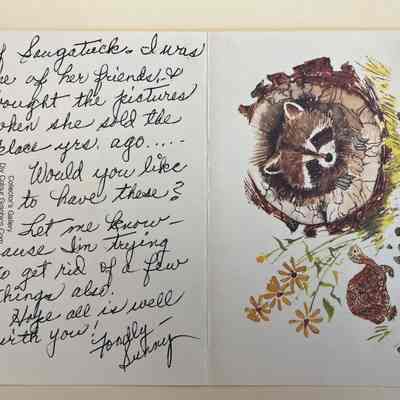 of Saugatuck. I was
one of her friends, &
bought the pictures
when she sold the
place yrs. ago.....-
Would you like
to have these?
Let me know -
cause I'm trying
to get rid of a few
things also!
Hope all is well
with you!
Fondly -
Sunny
Collector's Gallery